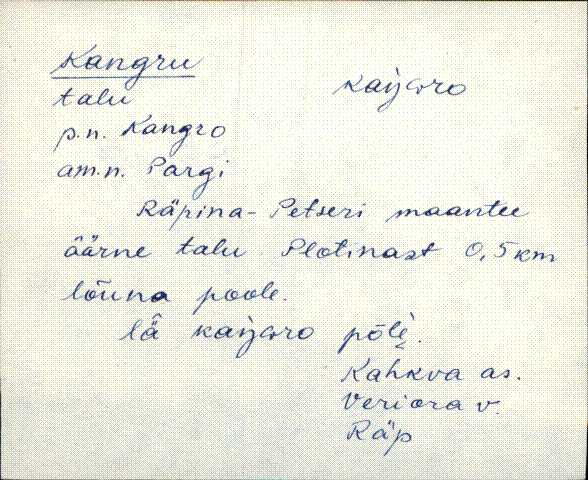 Kangru
kaŋGro
talu
p.n. Kangro
am.n. Pargi
Räpina - Petseri maantee
äärne talu Plotinast 0,5 km
lõuna poole.
lä kaŋGro põlè.
Kahkva as.
Veriora v.
Räp